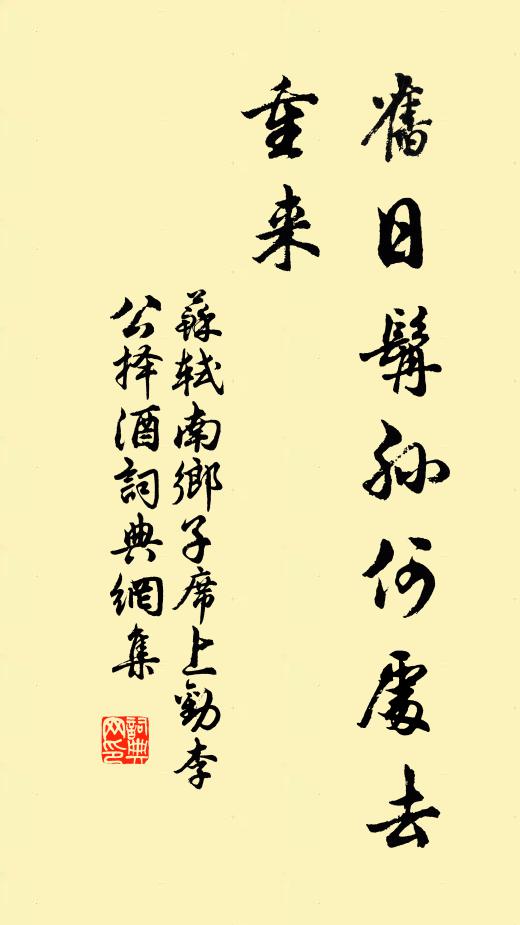 舊日髯孫何處去
重来
蘇軾南鄉子席上勸李
公择酒詞典網集
詞典
网印